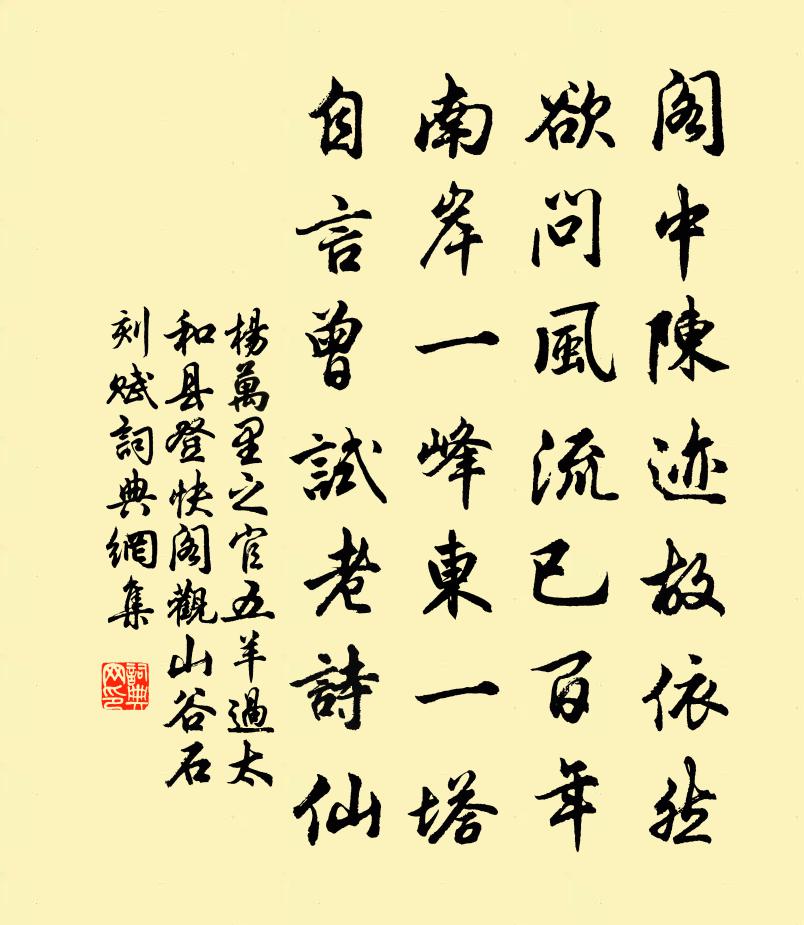 閣中陳迹故依然
欲問風流已百年
南岸一峰東一塔
自言曾試老詩仙
楊萬里之官五羊過太
和县登快阁觀山谷石
刻賦詞典網集
詞典网印